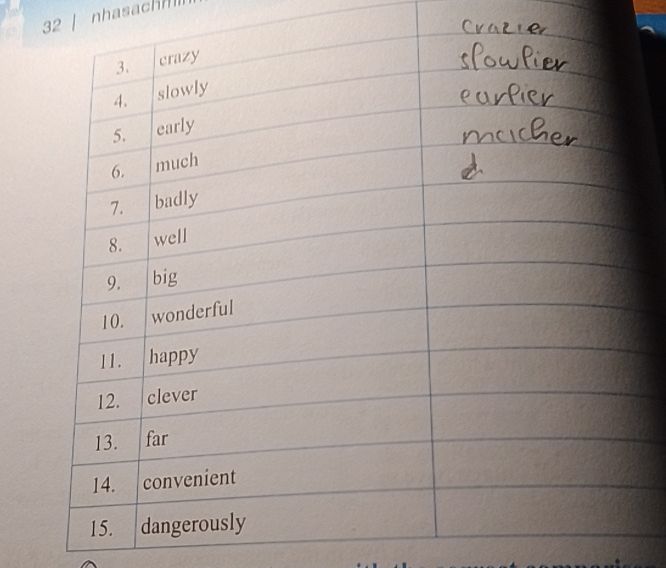 32 | nhasachmin
3. crazy crazier
4. slowly slowlier
5. early earlier
6. much mucher
7. badly
8. well
9. big
10. wonderful
11. happy
12. clever
13. far
14. convenient
15. dangerously